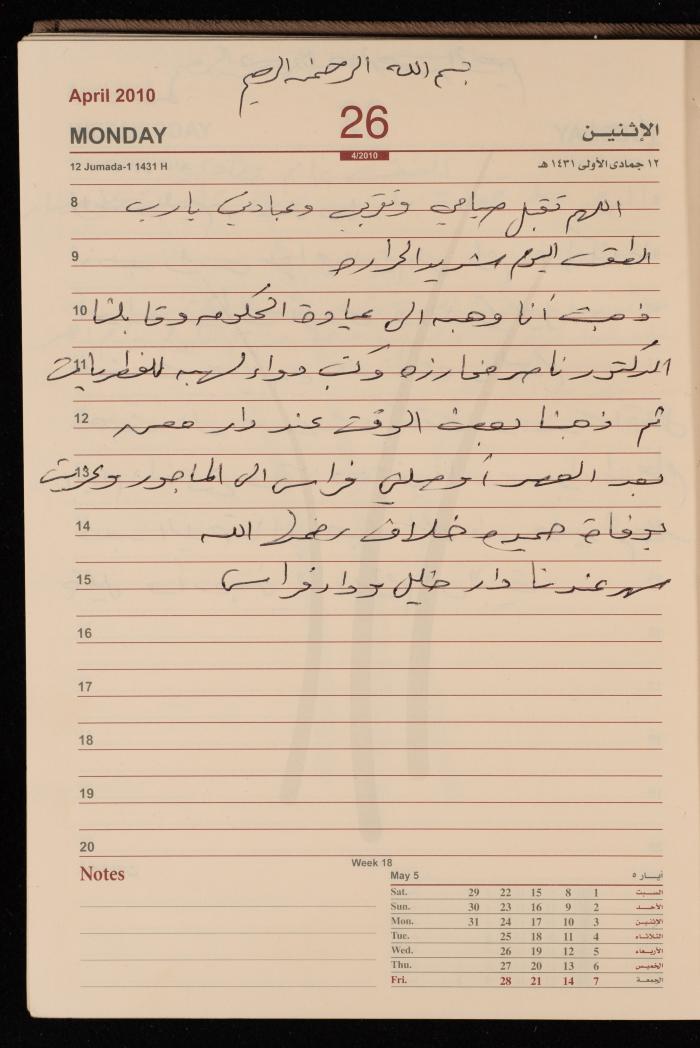 بسم الله الرحمن الرحيم
April 2010
MONDAY 26 الإثنين
12 Jumada-1 1431 H 4/2010 ١٢ جمادى الأولى ١٤٣١ هـ
8 اللهم تقبل صيامي وتقربي وعبادتي يارب
9 الطقس اليوم شديد الحرارة
10 ذهبت أنا وهبه الى عيادة الحكومه وقابلنا
11 الدكتور ناصر مخارزه وكتب دواء لهبه للفطريات
12 ثم ذهبنا بعض الوقت عند دار
13 بعد العصر أوصلني فراس الى الماجور وعزيت
14 بوفاة حميده خلاف رحمها الله
15 سهر عندنا دار خليل ودار فراس
16
17
18
19
20
Notes
Week 18
May 5 أيـــار ٥
Sat. 29 22 15 8 1 السبت
Sun. 30 23 16 9 2 الأحد
Mon. 31 24 17 10 3 الإثنين
Tue. 25 18 11 4 الثلاثاء
Wed. 26 19 12 5 الأربعاء
Thu. 27 20 13 6 الخميس
Fri. 28 21 14 7 الجمعة